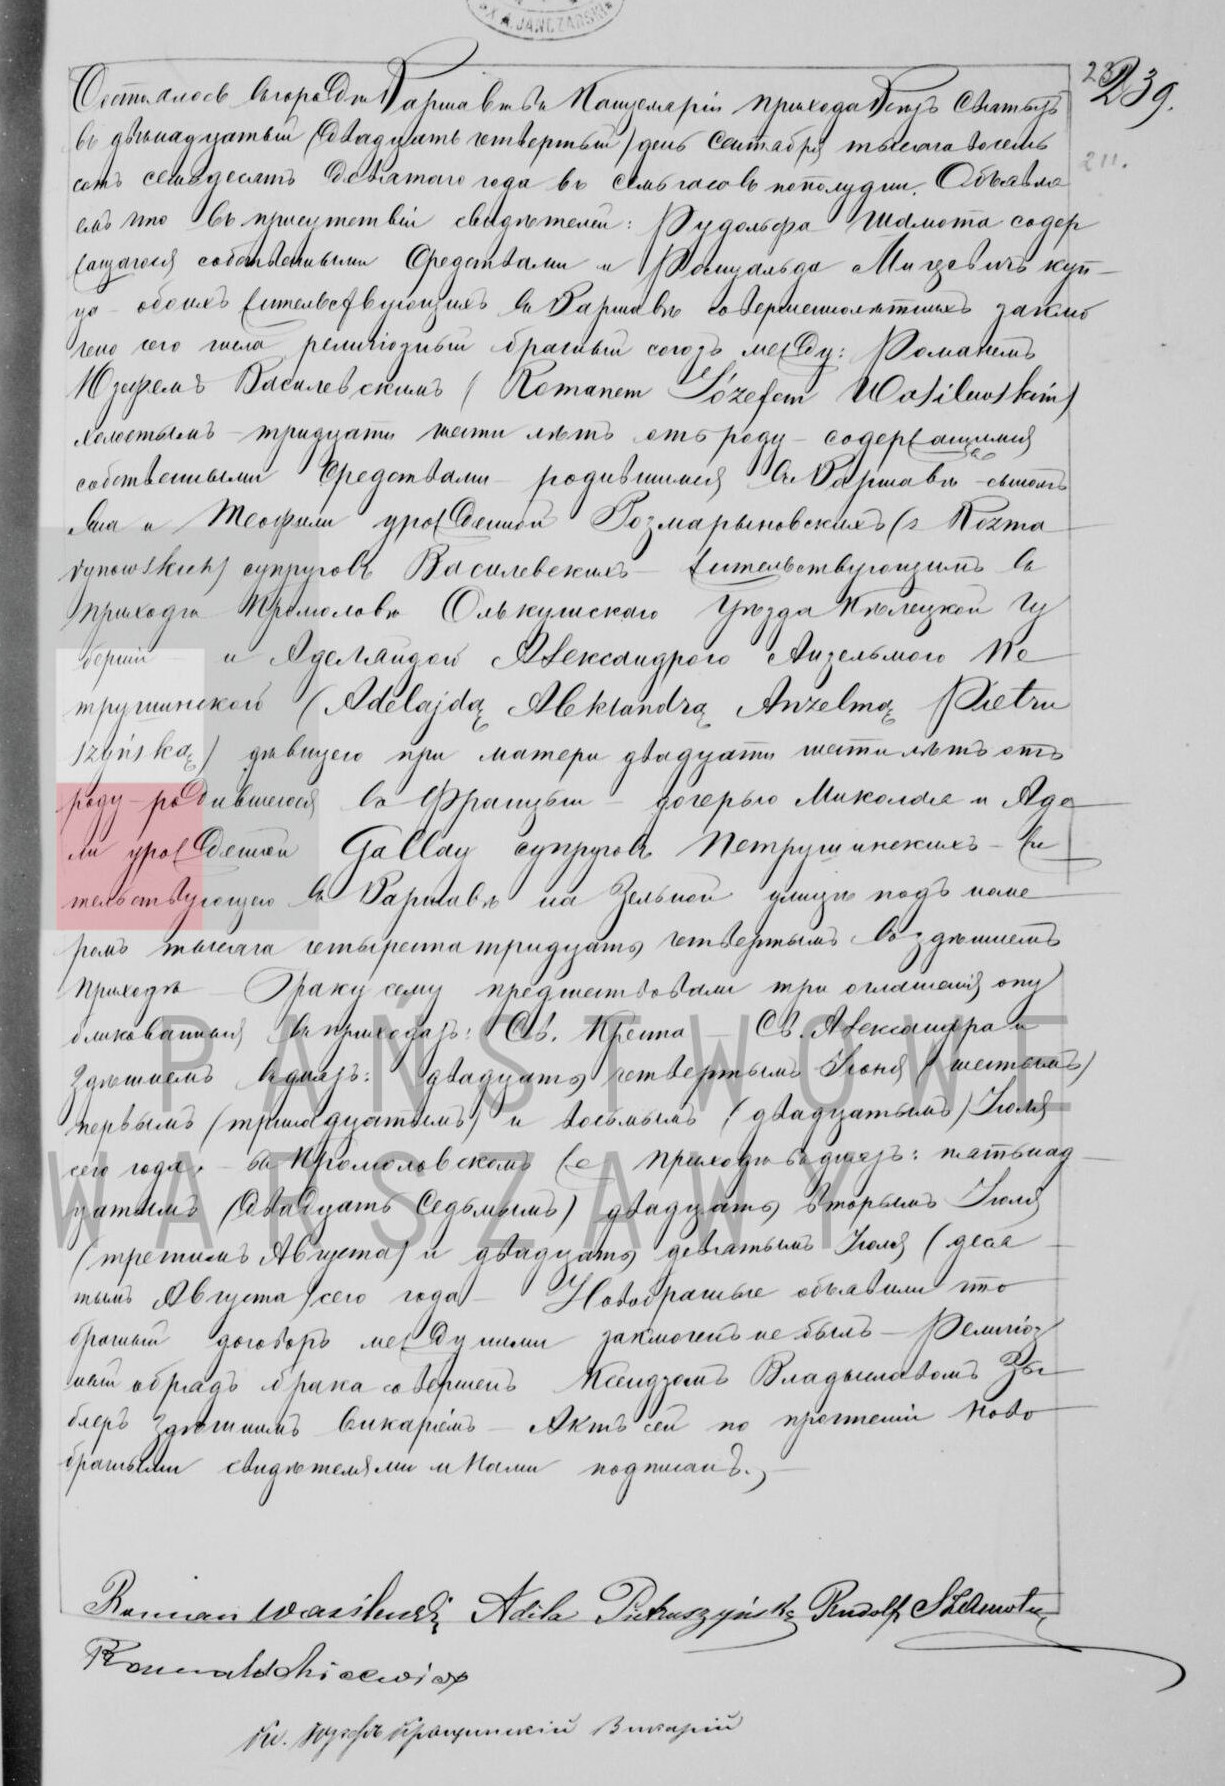 K.A. JANCZARSKI
239.
211.
Состоялось въ городѣ Варшавѣ въ Канцеляріи прихода Всѣхъ Святыхъ
въ двѣнадцатый (двадцать четвертый) день Сентября тысяча восемь
сотъ семьдесятъ девятаго года въ семь часовъ пополудни. Объявля
емъ что въ присутствіи свидѣтелей: Рудольфа Шамота содер
жащагося собственными средствами и Ромуальда Мицевичъ куп-
ца обоихъ жительствующихъ въ Варшавѣ совершеннолѣтнихъ заклю
чено сего числа религіозный брачный союзъ между: Романемъ
Юзефемъ Василевскимъ (Romanem Józefem Wasilewskim)
холостымъ - тридцати шести лѣтъ отъ роду - содержащимся
собственными средствами - родившимся въ Варшавѣ - сыномъ
и Теофили урожденной Розмарыновскихъ (z Rozma
rynowskich) супруговъ Василевскихъ - жительствующимъ въ
приходѣ Кромоловѣ Олькушскаго Уѣзда Кѣлецкой Гу
берніи - и Аделаидой Александрою Анзельмою Пе
трушинской (Adelajdą Aleksandrą Anzelmą Pietru
szyńską) дѣвицею при матери двадцати шести лѣтъ отъ
роду - родившеюся во Франціи - дочерью Миколая и Аде
ли урожденной Gallay супруговъ Петрушинскихъ - жи
тельствующею въ Варшавѣ на Зельной улицѣ подъ номе
ромъ тысяча четыреста тридцать четвертымъ въ здѣшнемъ
приходѣ - Браку сему предшествовали три оглашенія опу
бликованныя въ приходахъ: Св. Креста - Св. Александра и
здѣшнемъ въ дняхъ: двадцать четвертымъ Іюня (шестымъ)
первымъ (тринадцатымъ) и восьмымъ (двадцатымъ) Іюля
сего года. - въ Кромоловскомъ же приходѣ въ дняхъ: пятьнад
цатымъ (двадцать седьмымъ) двадцать вторымъ Іюля
(третимъ Августа) и двадцать девятымъ Іюля (деся
тымъ Августа) сего года - Новобрачные объявили что
брачный договоръ между ними заключенъ не былъ - Религіоз
ный обрядъ брака совершенъ Ксендзомъ Владыславомъ Зы
блеръ здѣшнимъ викаріемъ - Актъ сей по прочтеніи ново
брачными свидѣтелями и Нами подписанъ. -
Roman Wasilewski Adela Pietruszyńska Rudolf Szamota
Romuald Micewicz
Кс. Викарій
PAŃSTWOWE
WARSZAWY